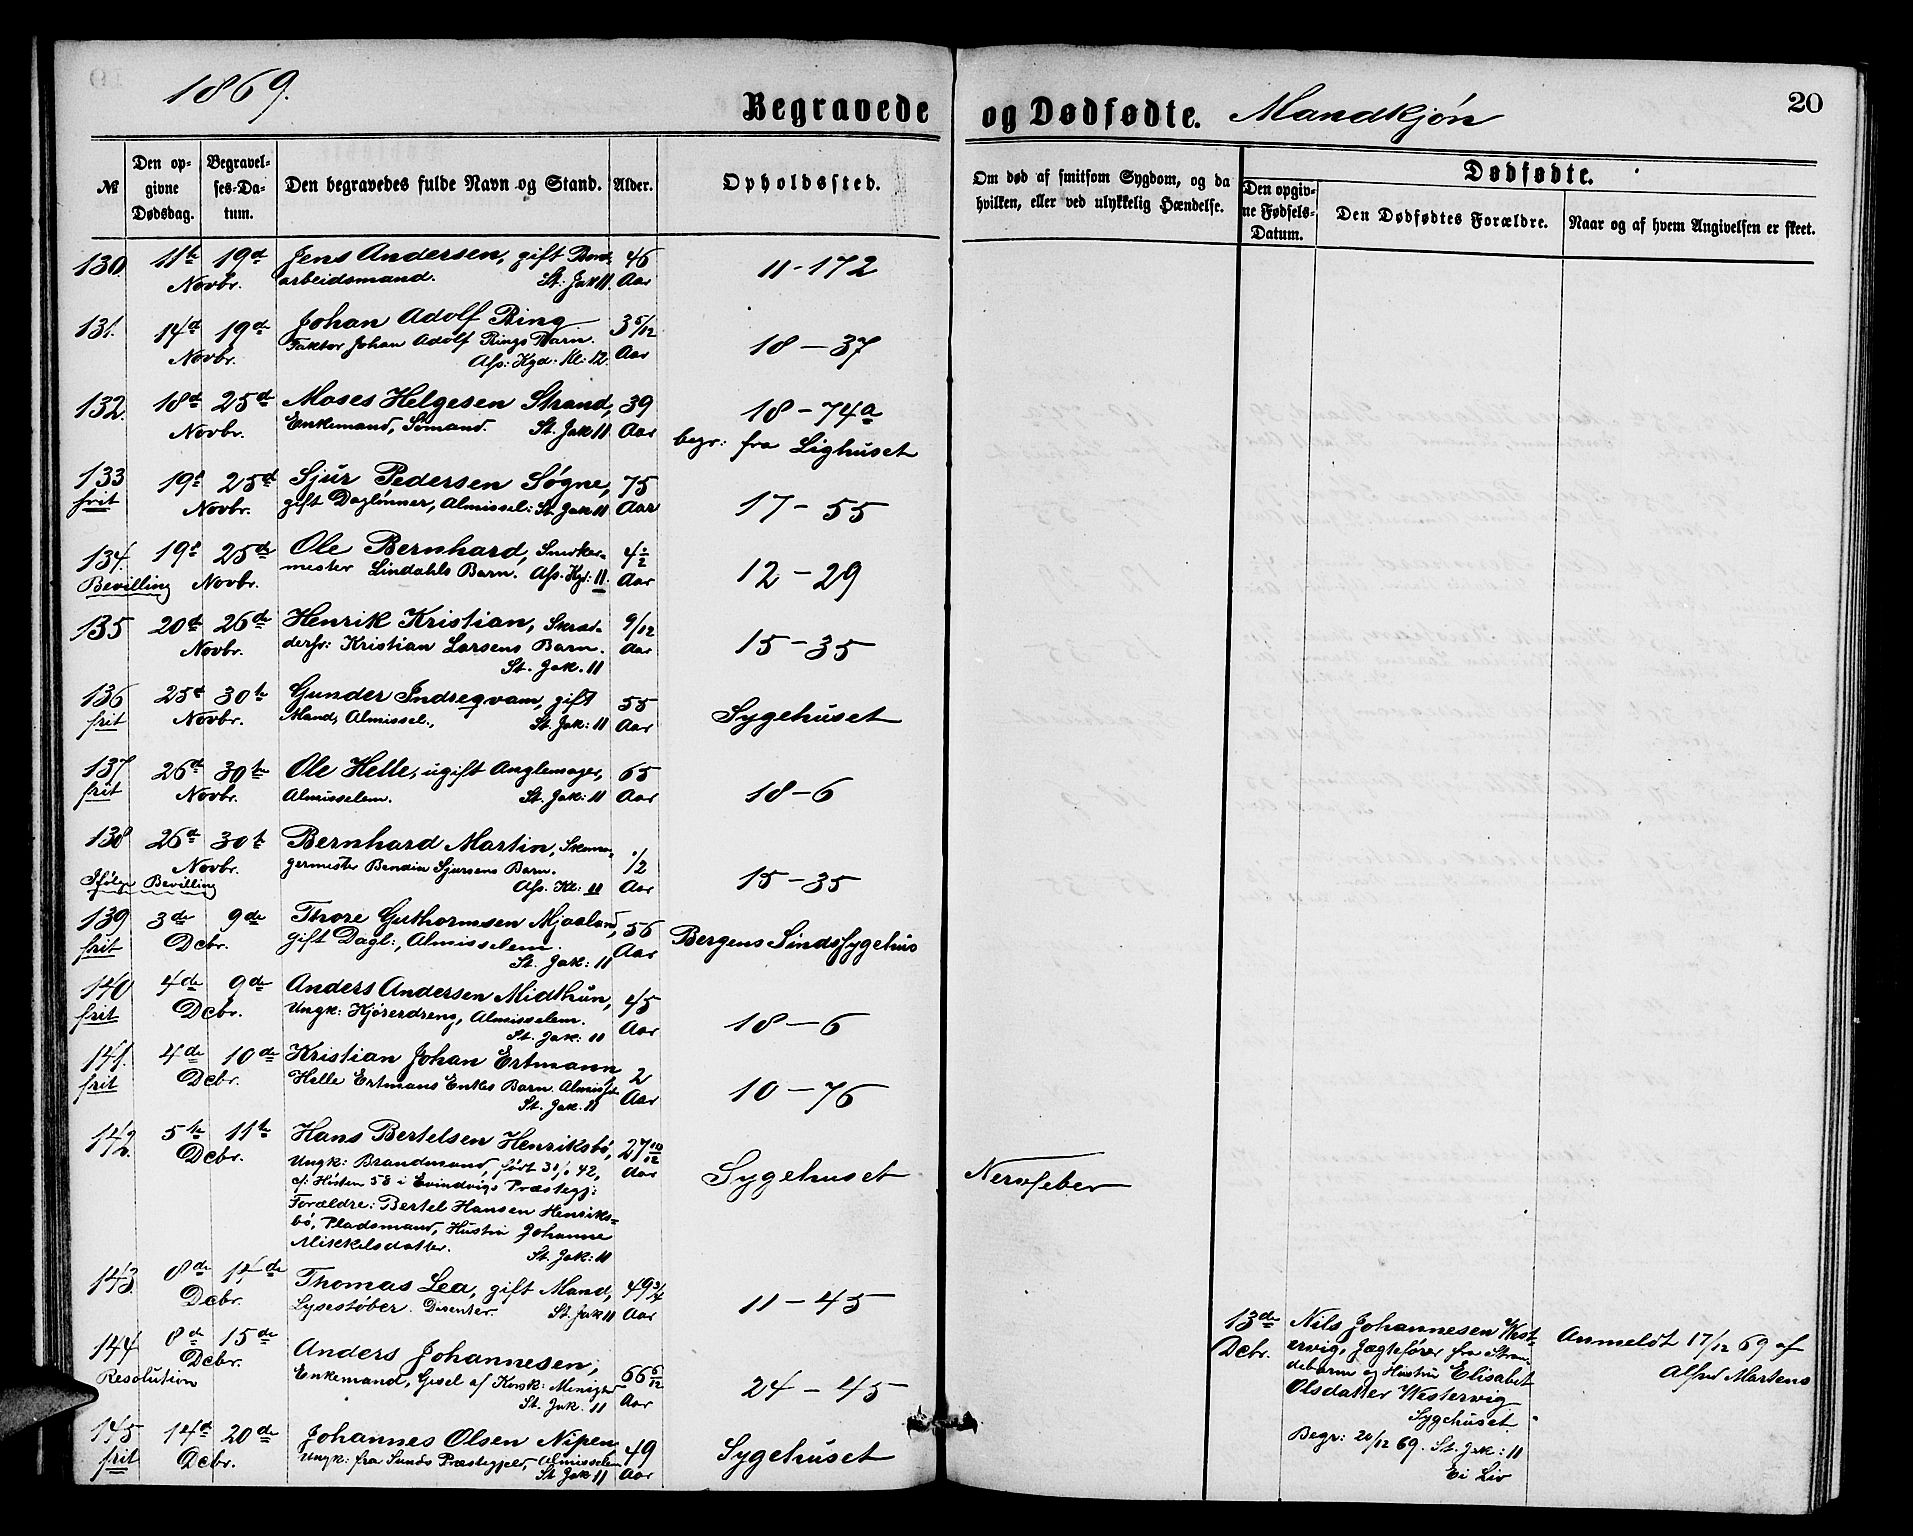 1869.
Begravede og Dødfødte. Mandkjøn
20
№
Den op-
givne
Dødsdag.
Begravel-
ses-Da-
tum.
Den begravedes fulde Navn og Stand.
Alder.
Opholdssted.
Om død af smitsom Sygdom, og da
hvilken, eller ved ulykkelig Hændelse.
Dødfødte.
Den opgiv-
ne Fødsels-
Datum.
Den Dødfødtes Forældre.
Naar og af hvem Angivelsen er skeet.
130. 11te 19d Jens Andersen, gift 46 11-172
Novbr. arbeidsmand. St: Jak 11. Aar
131. 14d 19d Johan Adolf Ring 3 5/12
Novbr. Faktor Johan Adolf Rings Barn. Aar 18-37
Afs: Kgd: Kl: 12.
132. 18d 25d Moses Helgesen Strand, 39 18-74a
Novbr. Enkemand, Sømand. St. Jak 11 Aar begr: fra Lighuset
133 19d 25d Sjur Pedersen Søgne, 75
frit Novbr. gift Dagлønner, Almissel: St. Jak 11 Aar 17-55
134. 19d 25de Ole Bernhard, Snedker- 4 1/2
Bevilling Novbr. mester Lindahls Barn. Afs. Kgd: 11. Aar 12-29
135 20de 26de Henrik Kristian, Skræd- 9/12
Novbr. dersv: Kristian Larsens Barn. Aar 15-35
St. Jak. 11
136 25d 30te Gunder Indreqvam, gift 55
frit Novbr. Mand, Almissel., St. Jak: 11 Aar Sygehuset
137 26d 30te Ole Helle, ugift Anglemager, 65
frit Novbr. Almisselem. St. Jak: 11 Aar 18-6
138 26d 30te Bernhard Martin, Skoma- 1/2
Novbr. germester Bendix Sjursens Barn.
Ifølge Bevilling Afs. Kl: 11 Aar 15-35
139 3de 9de Thore Guthormsen Mjaaland, 56
frit Dcbr. gift Dagl:, Almisselem. Aar Bergens Sindssygehus
St. Jak: 11
140 4de 9de Anders Andersen Midthun, 45
frit Dcbr. Ungk: Kjørerdreng, Almisselem. Aar 18-6
St. Jak: 11
141. 4de 10de Kristian Johan Ertmann, 2
frit Dcbr. Helle Ertmans Enkes Barn. Almisst. Aar 10-76
St. Jak. 11
142. 5te 11te Hans Bertelsen Henriksbø, 27 10/12
Dcbr. Ungk: Brandmand, født 31/1 42, Aar Sygehuset Nervfeber
cf: Høsten 58 i Evindvigs Præstegj:
Forældre: Bertel Hansen Henriks-
bø, Pladsmand, Hustru Johanne
Mikkelsdatter. St. Jak: 11
143. 8de 14de Thomas Lea, gift Mand, 49 3/4
Dcbr. Lysestøber. Disenter. St. Jak 11 Aar 11-45
144 8de 15de Anders Johannesen, 66 6/12
Dcbr. Enkemand, Aar 24-45
Resolution St. Jak. 11
145 14d 20de Johannes Olsen Nipen 49
frit Dcbr. Ungk: fra Sunds Præstegjeld, Almisselem Aar Sygehuset
St. Jak 11
13de
Dcbr.
Nils Johannesen West-
ervig, Jægtefører fra Stran-
debarm og Hustru Elisabet
Olsdatter Westervig
Sygehuset.
Begr: 20/12 69. St. Jak: 11
Ei Liv
Anmeldt 17/12 69 af
Alfred Martens